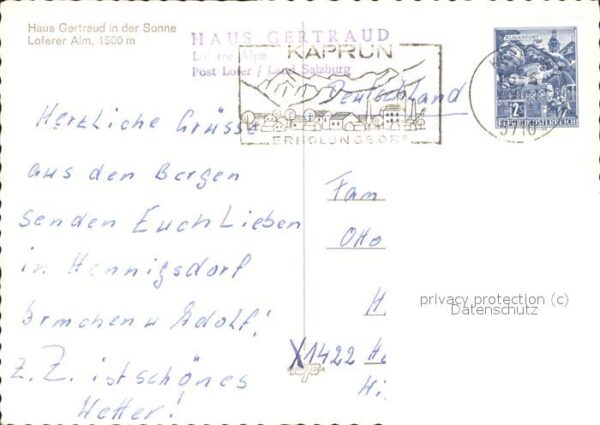 Haus Gertraud in der Sonne
Loferer Alm, 1500 m
HAUS GERTRAUD
Loferer Alpe
Post Lofer / Land Salzburg
KAPRUN
ERHOLUNGSORT
KLAGENFURT
2
REPUBLIK ÖSTERREICH
5710
Deutschland
Herzliche Grüsse
aus den Bergen
senden Euch Lieben
in Hennigsdorf
Ermchen u Adolf!
Z.Z. ist schönes
Wetter!
Fam
Otto
H
X1422 He
Hi
privacy protection (c)
Datenschutz